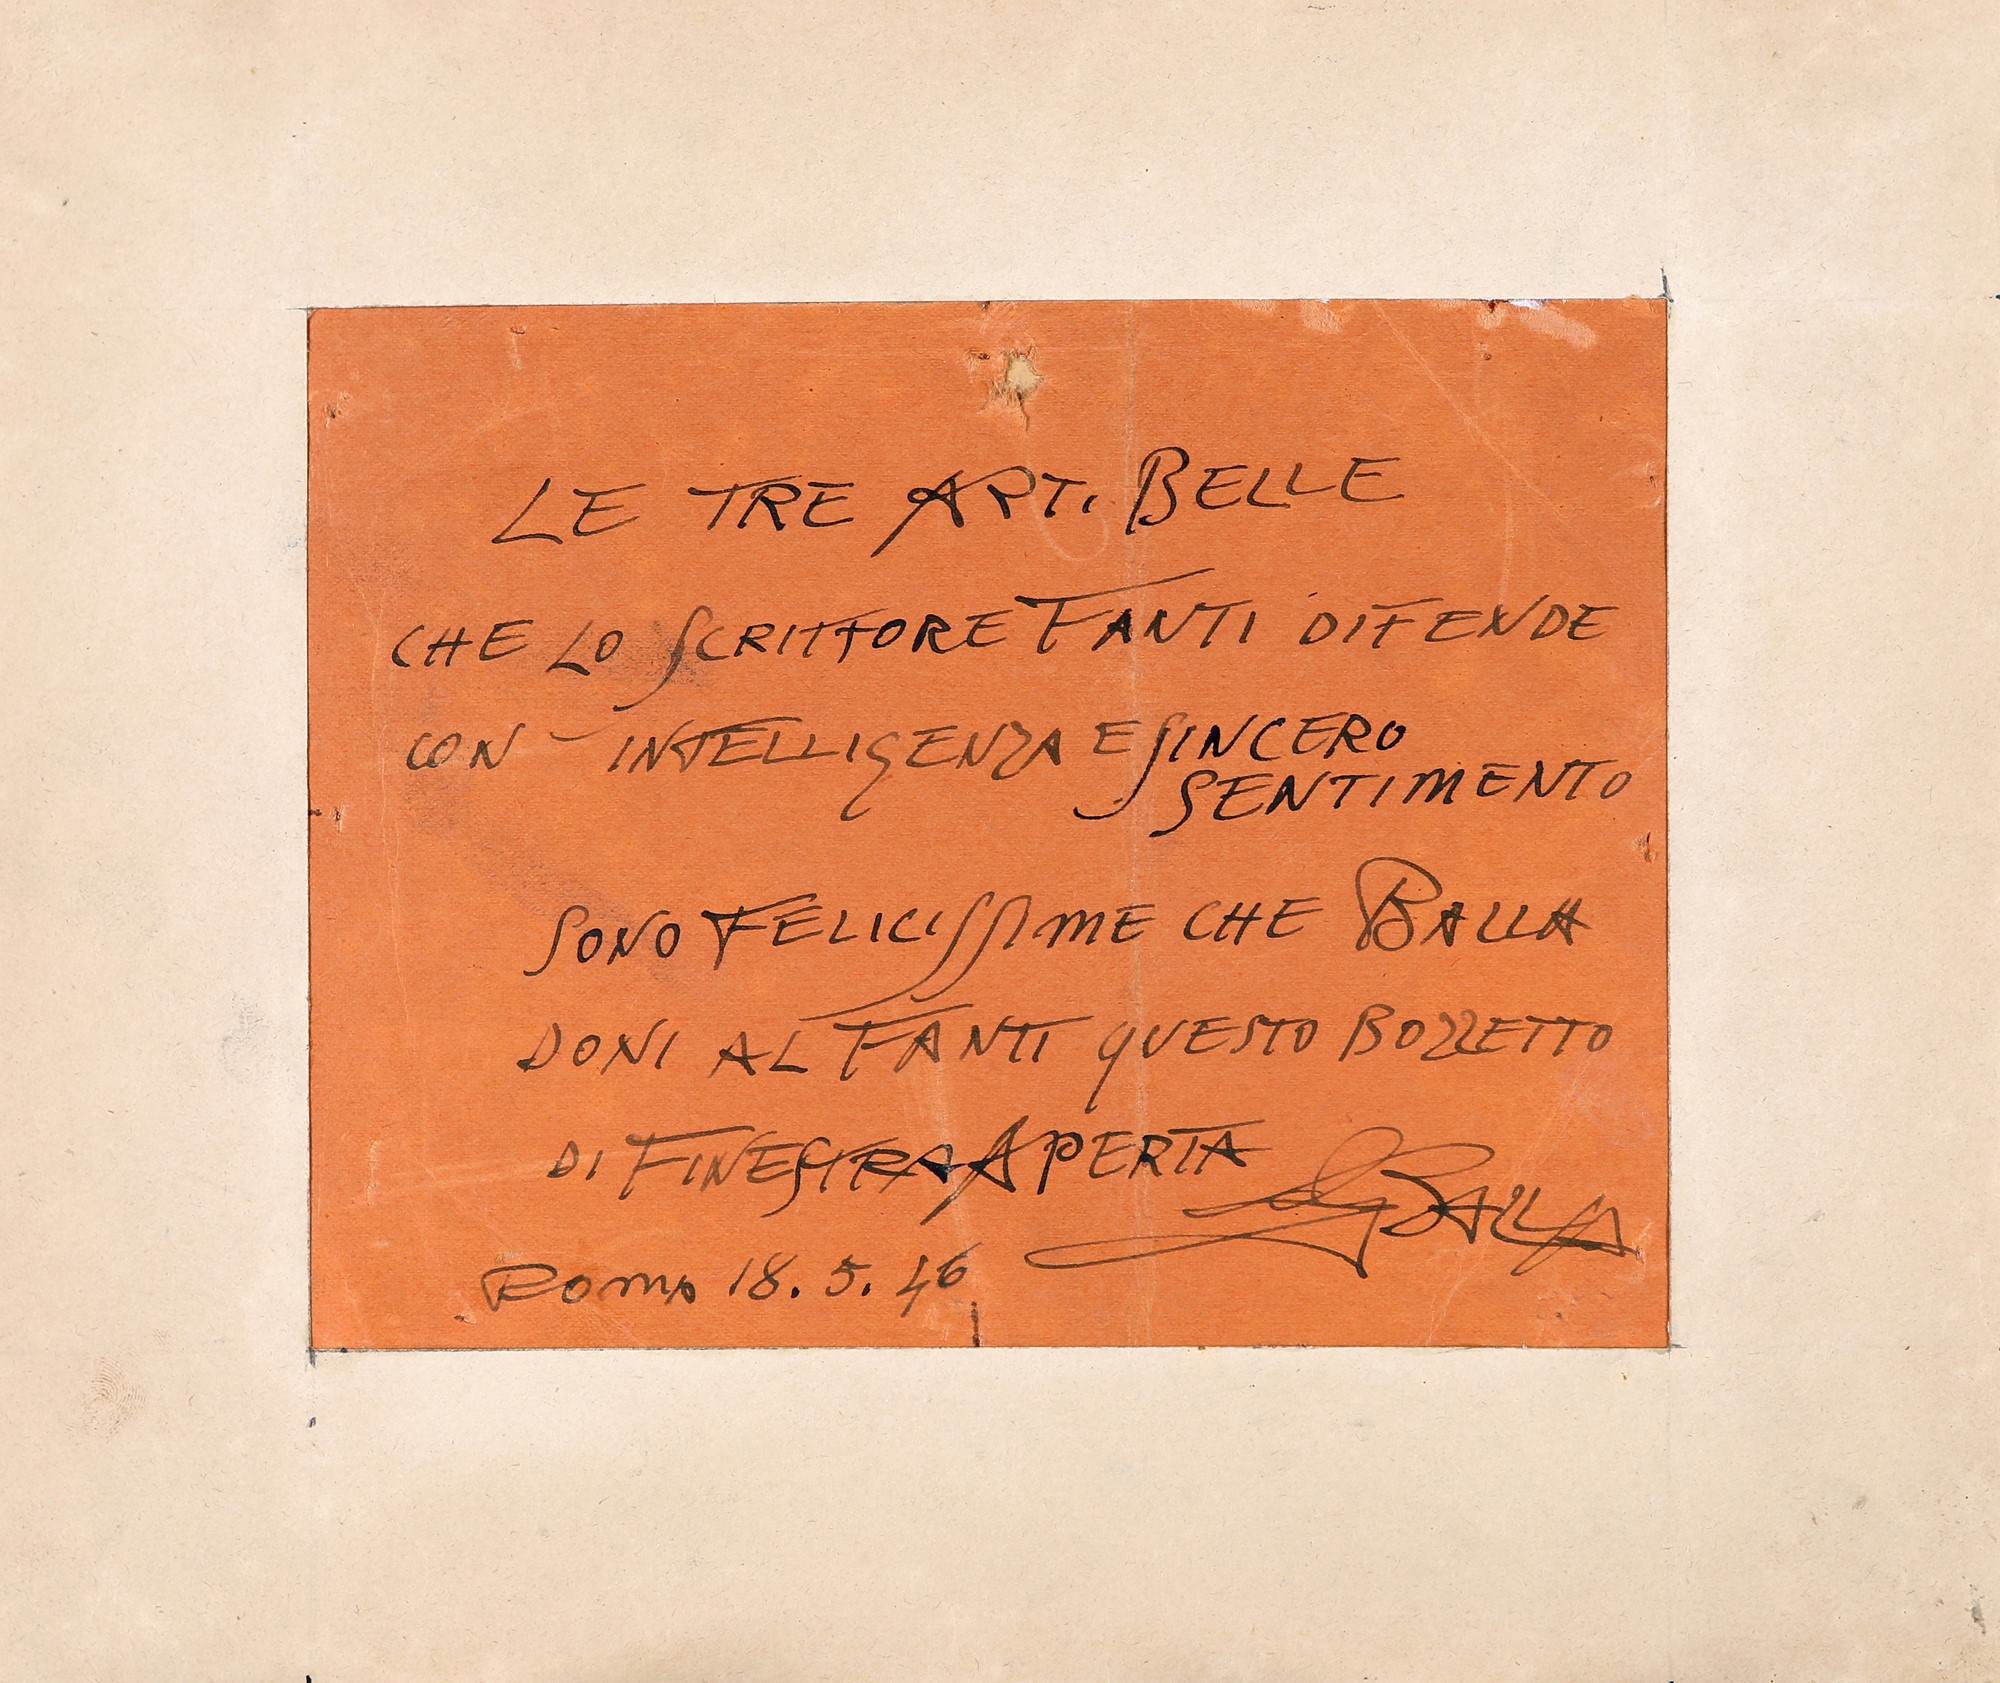 LE TRE ARTI BELLE
CHE LO SCRITTORE FANTI DIFENDE
CON INTELLIGENZA E SINCERO
SENTIMENTO
SONO FELICISSIME CHE BALLA
DONI AL FANTI QUESTO BOZZETTO
DI FINESTRA APERTA
BALLA
ROMA 18.5.46